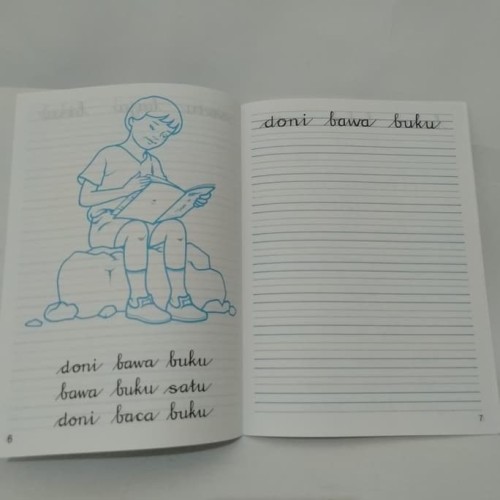 doni bawa buku
bawa buku satu
doni baca buku
6
doni bawa buku
7